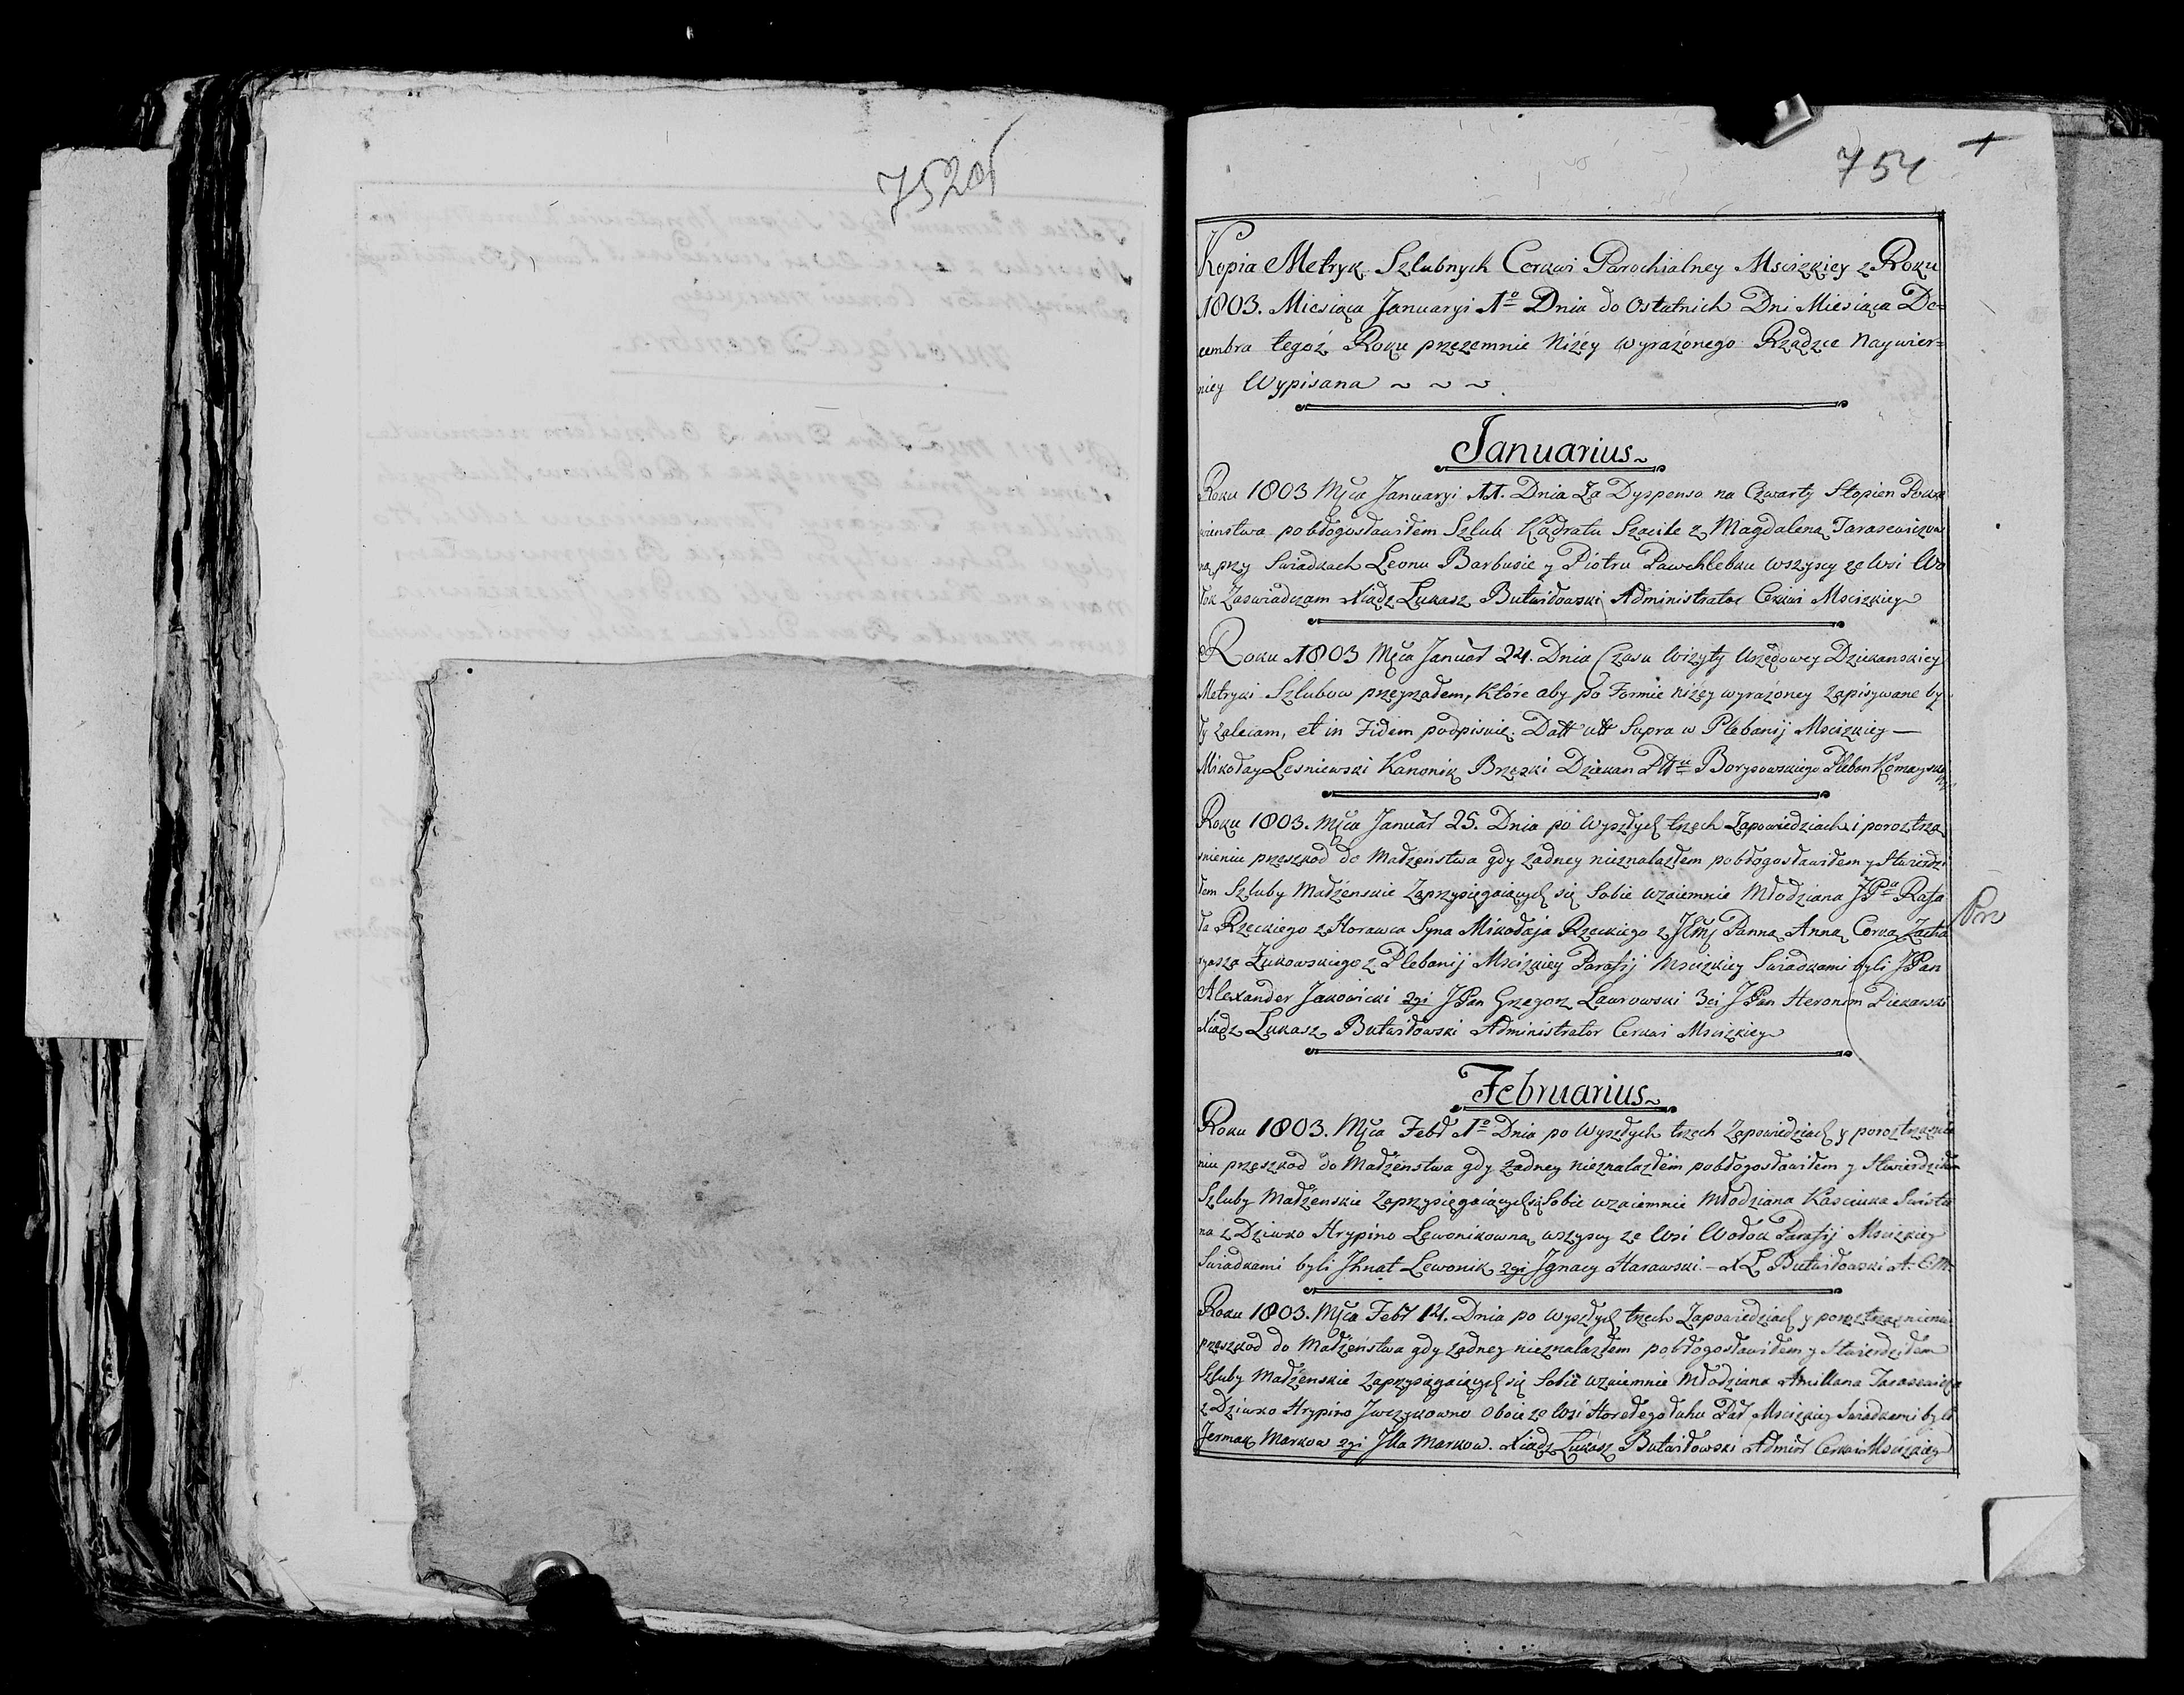 752об
754
Kopia Metryk Szlubnych Cerkwi Parochialney Mscizkiey z Roku
1803. Miesiąca Januaryi 1º Dnia do Ostatnich Dni Miesiąca De=
cembra tegoż Roku przezemnie Niżey wyrażonego Rządzce Naywier=
niey Wypisana ~ ~ ~.
Januarius~
Roku 1803 Mca Januaryi 11. Dnia Za Dyspenso na Czwarty Stopien Pokre
wienstwa pobłogosławiłem Szlub Kądratu Szacile z Magdaleną Tarasewiczow
ną przy Swiadkach Leonu Barbusie y Piotru Pawchlebku wszyscy ze Wsi Wo
łok Zaswiadczam Xiądz Łukasz Butwiłowski Administrator Cerkwi Mscizkiey
Roku 1803 Mca Januar 24. Dnia Czasu Wizyty Urzędowey Dziekanskiey
Metryki Szlubow przeyrzałem, Które aby po Formie niżey wyrażoney zapisywane by
ły zalecam, et in Fidem podpisuię. Datt utt Supra w Plebanij Mscizkiey —
Mikołay Lesniewski Kanonik Brzeski Dziekan Borysowskiego Pleban
Roku 1803. Mca Januar 25. Dnia po Wyszłych trzech Zapowiedziach i poroztrzą
snieniu przeszkod do Małżenstwa gdy żadney nieznalazłem pobłogosławiłem y Stwierdzi
łem Szluby Małżenskie Zaprzysięgaiących się Sobie wzaiemnie Młodziana JPa Rafa
ła Rzeckiego z Horawca Syna Mikołaja Rzeckiego z Panną Anną Corką Zacha
ryasza Żukowskiego z Plebanij Mscizkiey Parafij Mscizkiey Swiadkami byli JPan
Alexander Jakowicki 2gi JPan Grzegorz Lawrowski 3ci JPan Heronim Piekarski
Xiądz Łukasz Butwiłowski Administrator Cerkwi Mscizkiey
Februarius~
Roku 1803. Mca Febr 1º Dnia po Wyszłych trzech Zapowiedziach y poroztrząsnie
niu przeszkod do Małżenstwa gdy żadney nieznalazłem pobłogosławiłem y Stwierdziłem
Szluby Małżenskie Zaprzysięgaiących się Sobie wzaiemnie Młodziana Kasciuka
na z Dziewko Hrypino Lewonikowną wszyscy ze Wsi Wołok Parafij Mscizkiey
Swiadkami byli Jhnat Lewonik 2gi Jgnacy Harawski - X Ł Butwiłowski A. C. M.
Roku 1803. Mca Febr 14. Dnia po Wyszłych trzech Zapowiedziach y poroztrząsnieniu
przeszkod do Małżenstwa gdy żadney nieznalazłem pobłogosławiłem y Stwierdziłem
Szluby Małżenskie Zaprzysięgaiących się Sobie wzaiemnie Młodziana Amillana Tarasewicza
z Dziewko Hrypino Jwczykowno Oboie ze Wsi Horełego Łuhu Par Mscizkiey Swiadkami byli
Jermak Markow 2gi Jlla Markow. Xiądz Łukasz Butwiłowski Admitr Cerkwi Mscizkiey